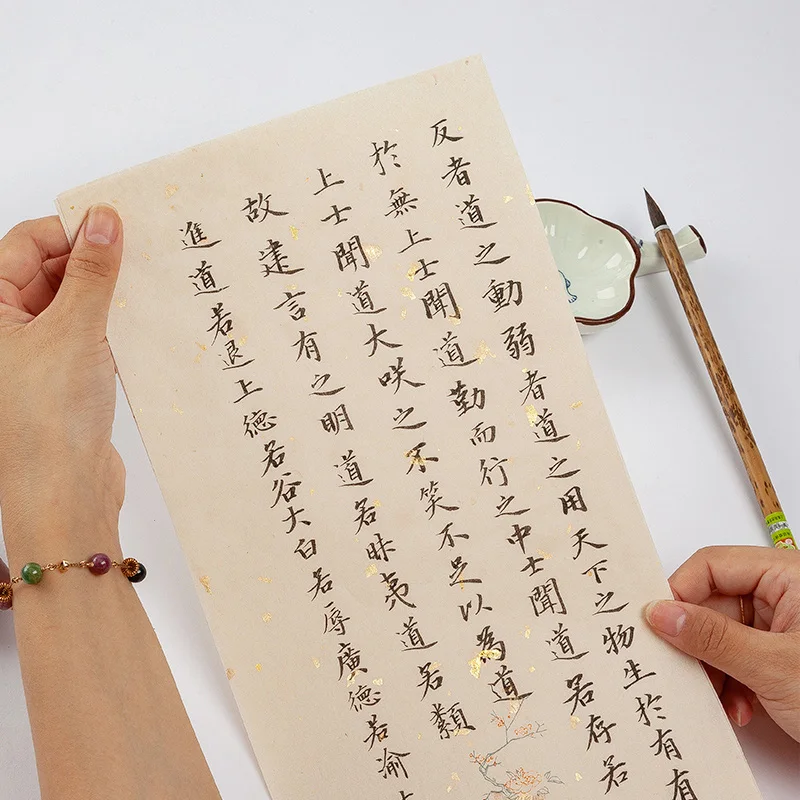 反者道之動弱者道之用天下之物生於有有
於無上士聞道勤而行之中士聞道若存若
上士聞道大咲之不笑不足以為道
故建言有之明道若昧夷道若纇
進道若退上德若谷大白若辱廣德若渝